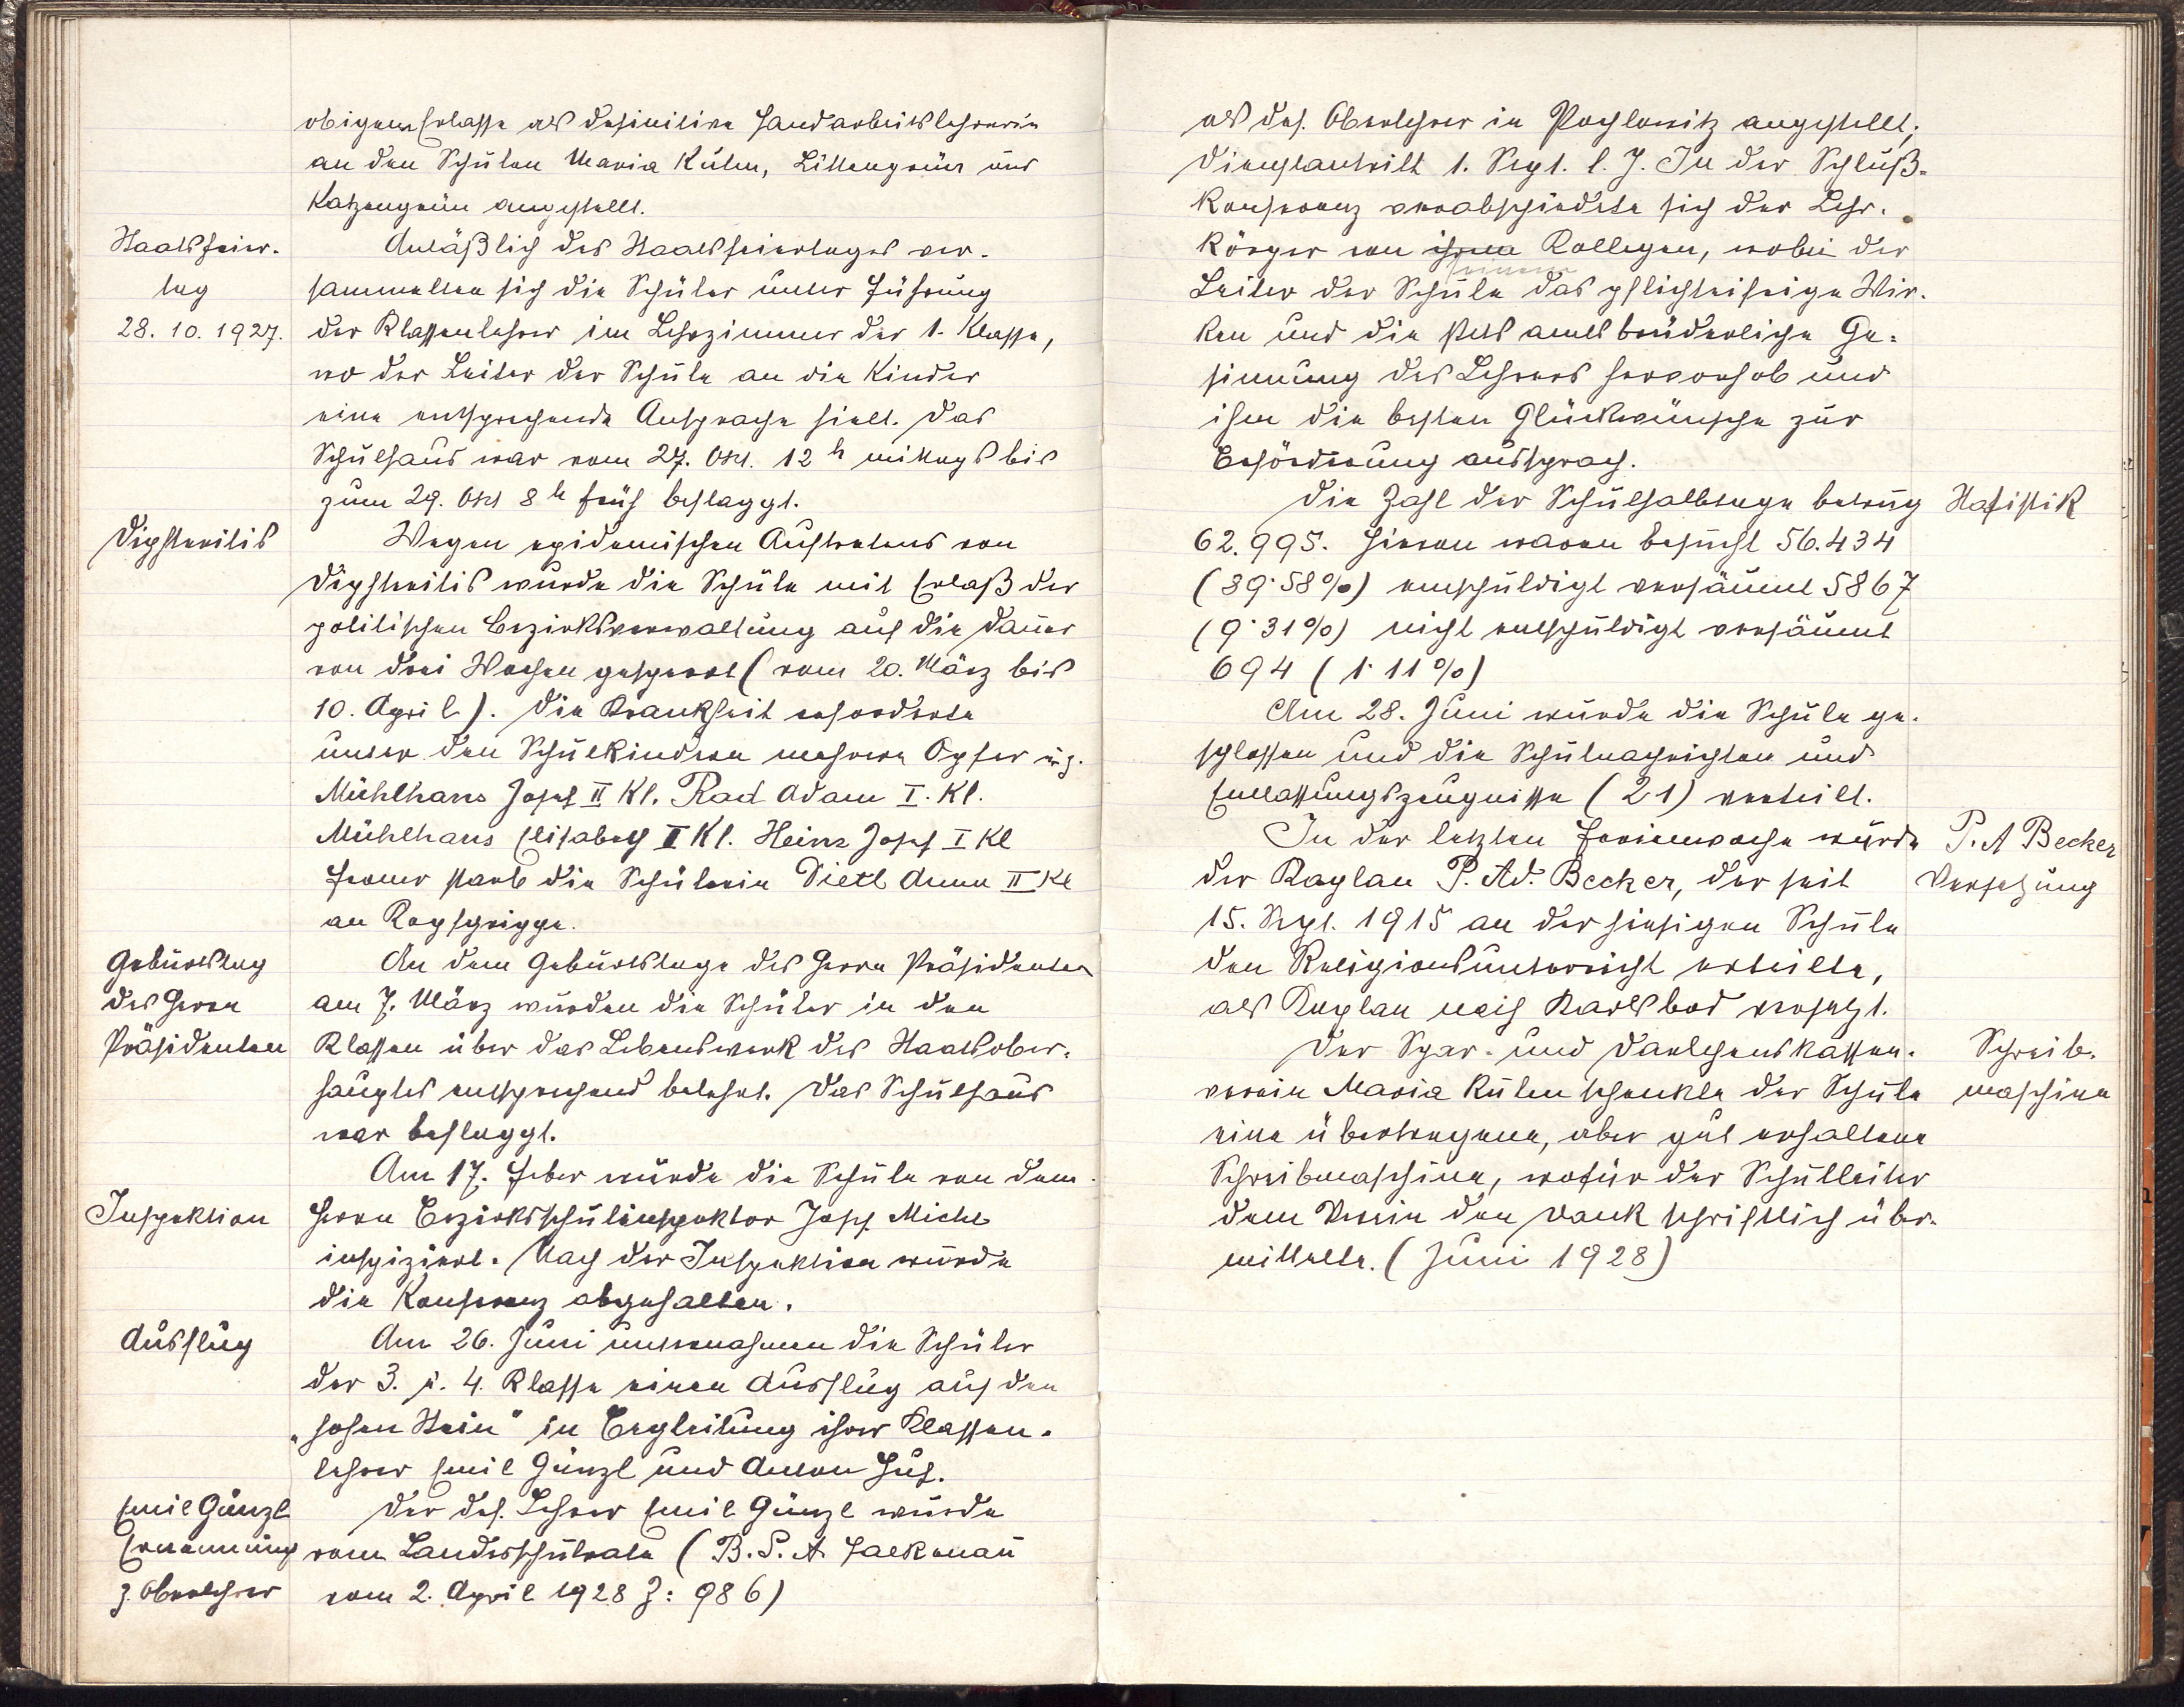 obigem Erlasse als definitive Handarbeitslehrerin
an den Schulen Maria Kulm, Littengrün und
Katzengrün angestellt.
Staatsfeier-
tag
28. 10. 1927.
Anläßlich des Staatsfeiertages ver-
sammelten sich die Schüler unter Führung
der Klassenlehrer im Lehrzimmer der 1. Klasse,
wo der Leiter der Schule an die Kinder
eine entsprechende Ansprache hielt. Das
Schulhaus war vom 27. Okt. 12 h mittags bis
zum 29. Okt 8 h früh beflaggt.
Diphteritis
Wegen epidemischen Auftretens von
Diphteritis wurde die Schule mit Erlaß der
politischen Bezirksverwaltung auf die Dauer
von drei Wochen gesperrt (vom 20. März bis
10. April). Die Krankheit erforderte
unter den Schulkindern mehrere Opfer u. z.
Mühlhans Josef II Kl. Rad Adam I. Kl.
Mühlhans Elisabeth II Kl. Heinz Josef I Kl
Ferner starb die Schülerin Dietl Anna II Kl
an Kopfgrippe.
Geburtstag
des Herrn
Präsidenten
An dem Geburtstage des Herrn Präsidenten
am 7. März wurden die Schüler in den
Klassen über das Lebenswerk des Staatsober-
hauptes entsprechend belehrt. Das Schulhaus
war beflaggt.
Inspektion
Am 17. Feber wurde die Schule von dem
Herrn Bezirksschulinspektor Josef Michl
inspiziert. Nach der Inspektion wurde
die Konferenz abgehalten.
Ausflug
Am 26. Juni unternahmen die Schüler
der 3. u. 4. Klasse einen Ausflug auf den
"hohen Stein" in Begleitung ihrer Klassen-
lehrer Emil Günzl und Anton Huf.
Emil Günzl
Ernennung
z. Oberlehrer
Der def. Lehrer Emil Günzl wurde
vom Landesschulrate (B. S. A. Falkenau
vom 2. April 1928 Z: 986)
als def. Oberlehrer in Pochlowitz angestellt;
Dienstantritt 1. Sept. l. J. In der Schluß-
konferenz verabschiedete sich der Lehr-
körper von ihrem Kollegen, wobei der
seinem
Leiter der Schule das pflichteifrige Wir-
ken und die stets amtsbrüderliche Ge-
sinnung des Lehrers hervorhob und
ihm die besten Glückwünsche zur
Beförderung aussprach.
Statistik
Die Zahl der Schulhalbtage betrug
62.995. Hievon waren besucht 56.434
(89·58%) entschuldigt versäumt 5867
(9·31%) nicht entschuldigt versäumt
694 (1·11%)
Am 28. Juni wurde die Schule ge-
schlossen und die Schulnachrichten und
Entlassungszeugnisse (21) verteilt.
P. A Becker
Versetzung
In der letzten Ferienwoche wurde
der Kaplan P. Ad. Becker, der seit
15. Sept. 1915 an der hiesigen Schule
den Religionsunterricht erteilte,
als Kaplan nach Karlsbad versetzt.
Schreib-
maschine
Der Spar- und Darlehenskassen-
verein Maria Kulm schenkte der Schule
eine übertragene, aber gut erhaltene
Schreibmaschine, wofür der Schulleiter
dem Verein den Dank schriftlich über-
mittelte. (Juni 1928)